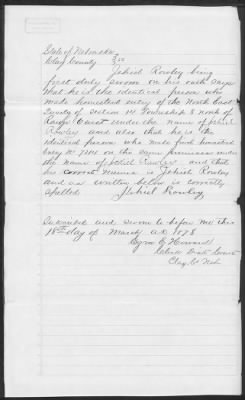 State of Nebraska
Clay County } SS
Jehiel Rowley being
first duly sworn on his oath says
that he is the identical person who
made homestead entry of the North East
Quarter of Section 14 Township 8 north of
Range 8 west under the name of
Rowley and also that he is the
identical person who made final homestead
entry No on the same premises under
the name of Rowley and that
his correct name is Jehiel Rowley
and as written below is correctly
spelled Jehiel Rowley
Subscribed and sworn to before me this
18th day of March A.D. 1878
Howard
Clerk Dist Court
Clay Co Neb